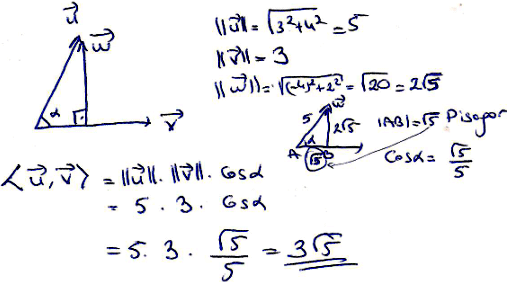 u⃗
w⃗
α
v⃗
||u⃗|| = √(3²+4²) = 5
||v⃗|| = 3
||w⃗|| = √((-4)²+2²) = √20 = 2√5
w⃗
5
2√5
α
A
B
√5
|AB| = √5 Pisagor
Cosα = √5/5
<u⃗, v⃗> = ||u⃗|| . ||v⃗|| . Cosα
= 5 . 3 . Cosα
= 5 . 3 . √5/5 = 3√5